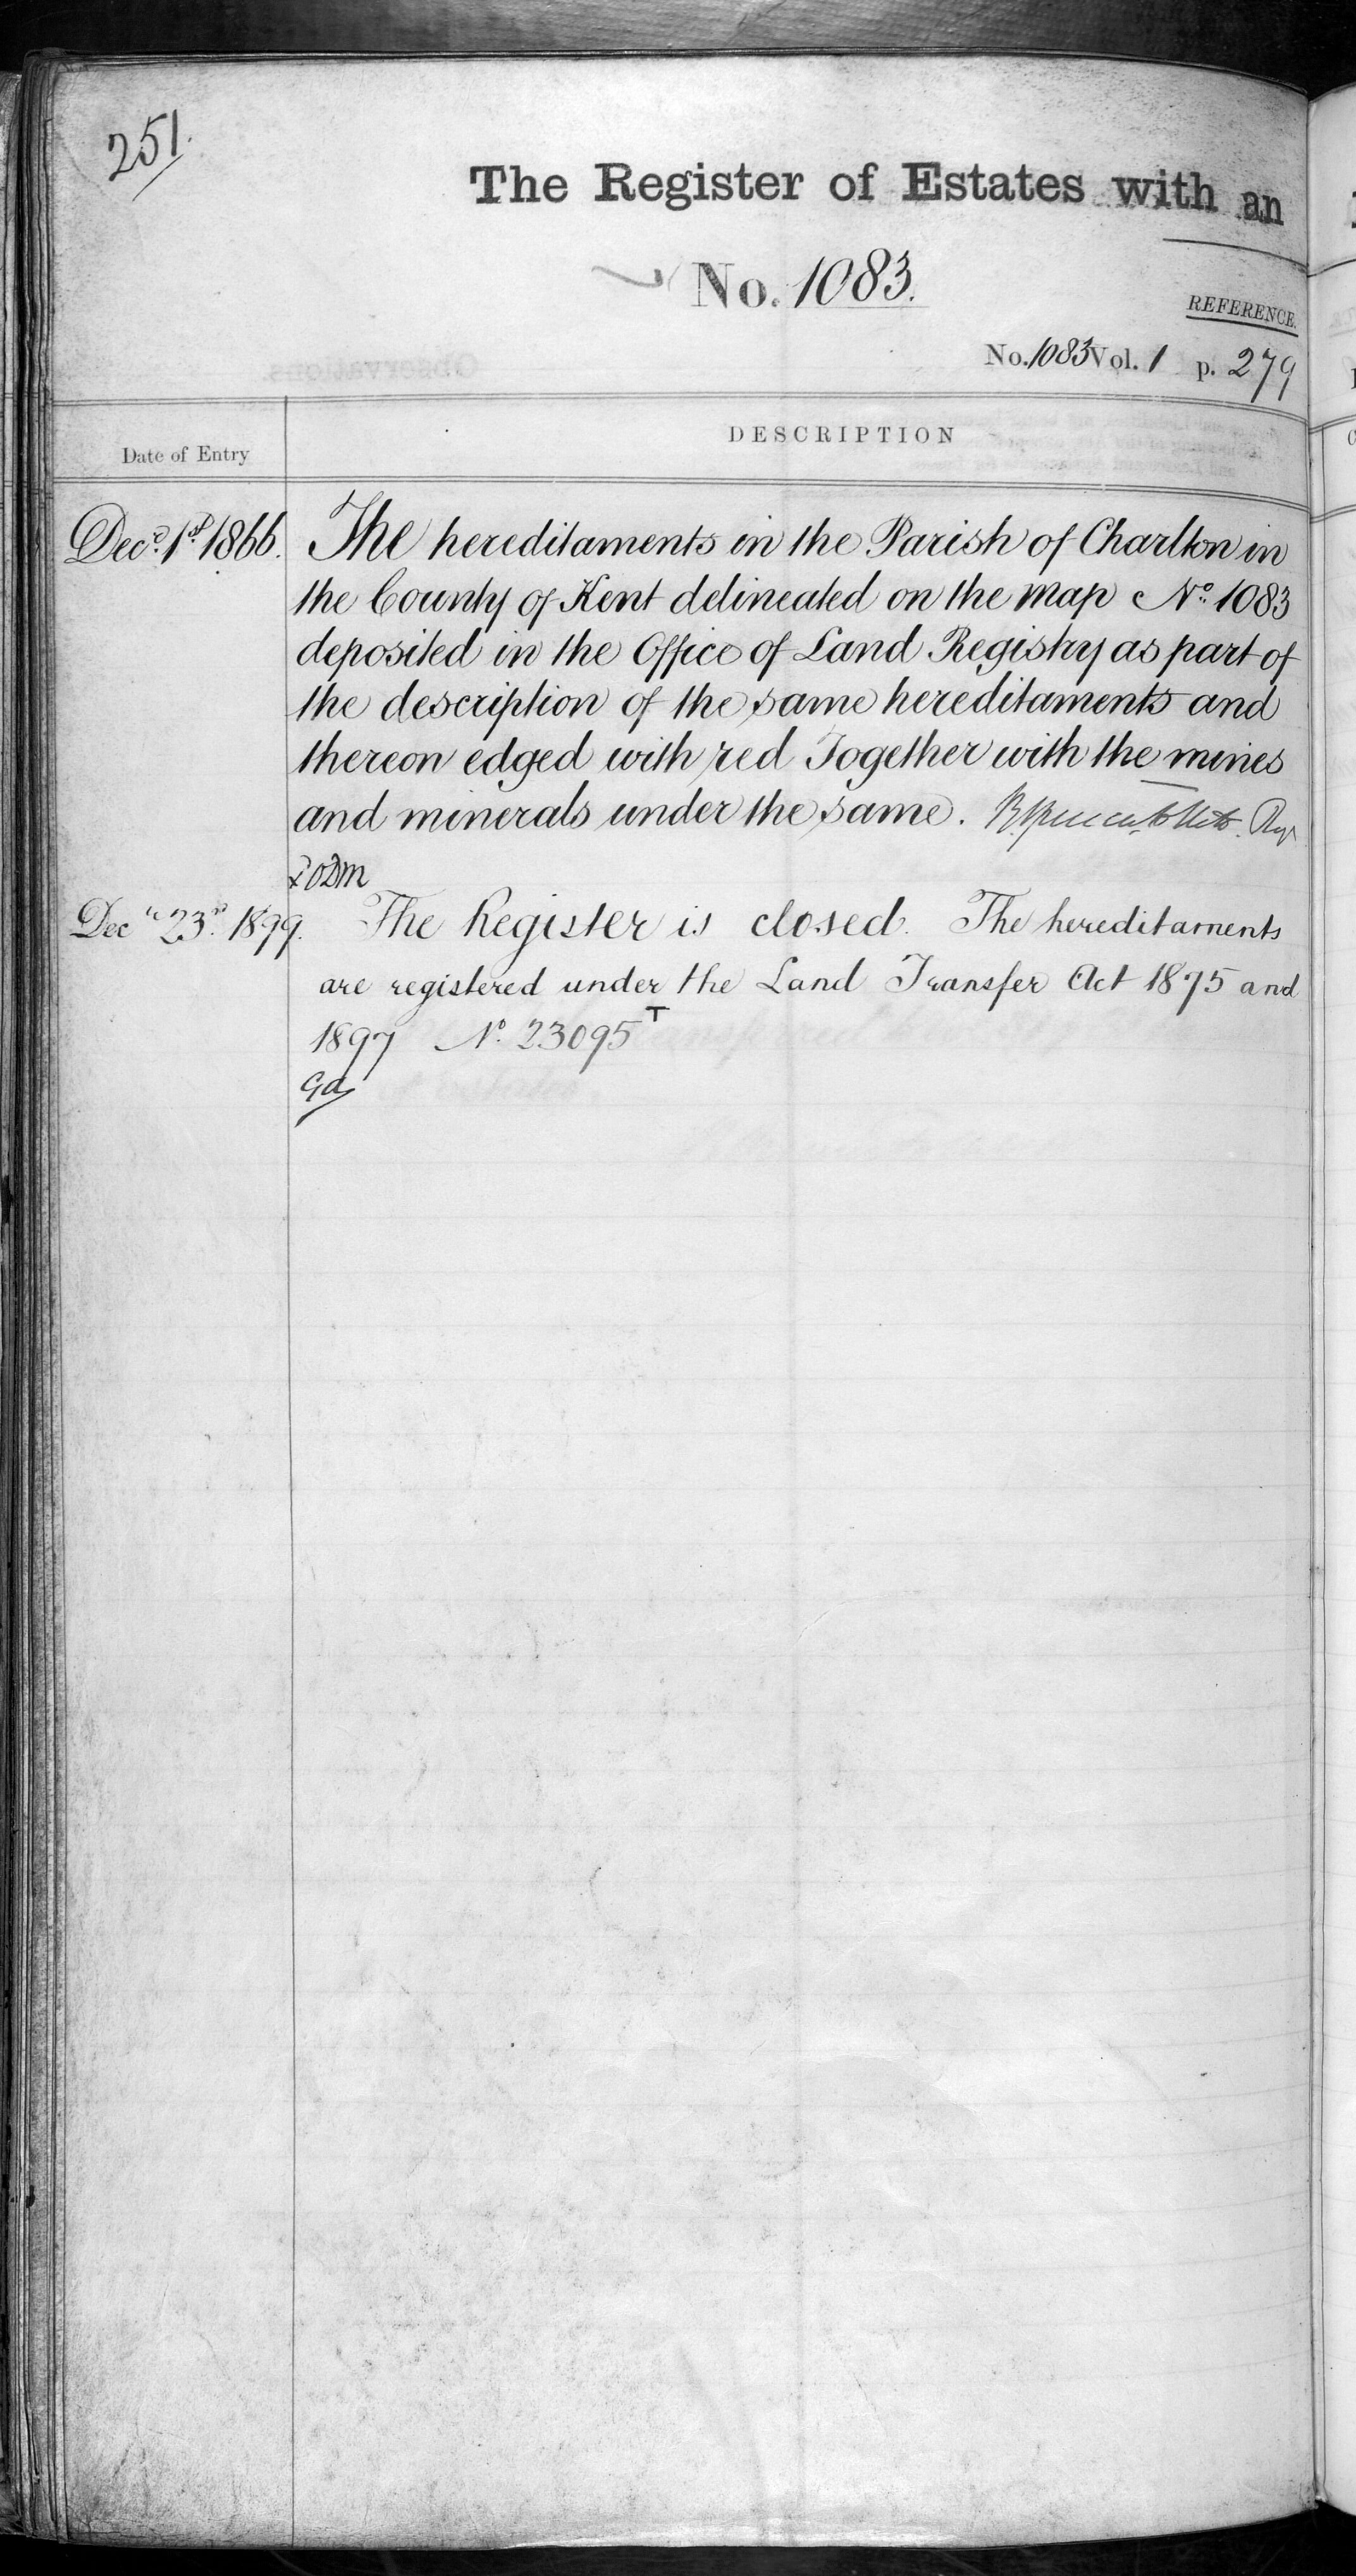 251.
The Register of Estates with an
No. 1083.
REFERENCE.
No. 1083 Vol. 1 p. 279
Date of Entry
DESCRIPTION
Decr. 1st 1866. The hereditaments in the Parish of Charlton in
the County of Kent delineated on the map No. 1083
deposited in the Office of Land Registry as part of
the description of the same hereditaments and
thereon edged with red Together with the mines
and minerals under the same.
Decr 23rd 1899. The Register is closed. The hereditaments
are registered under the Land Transfer Act 1875 and
1897 No. 23095 T